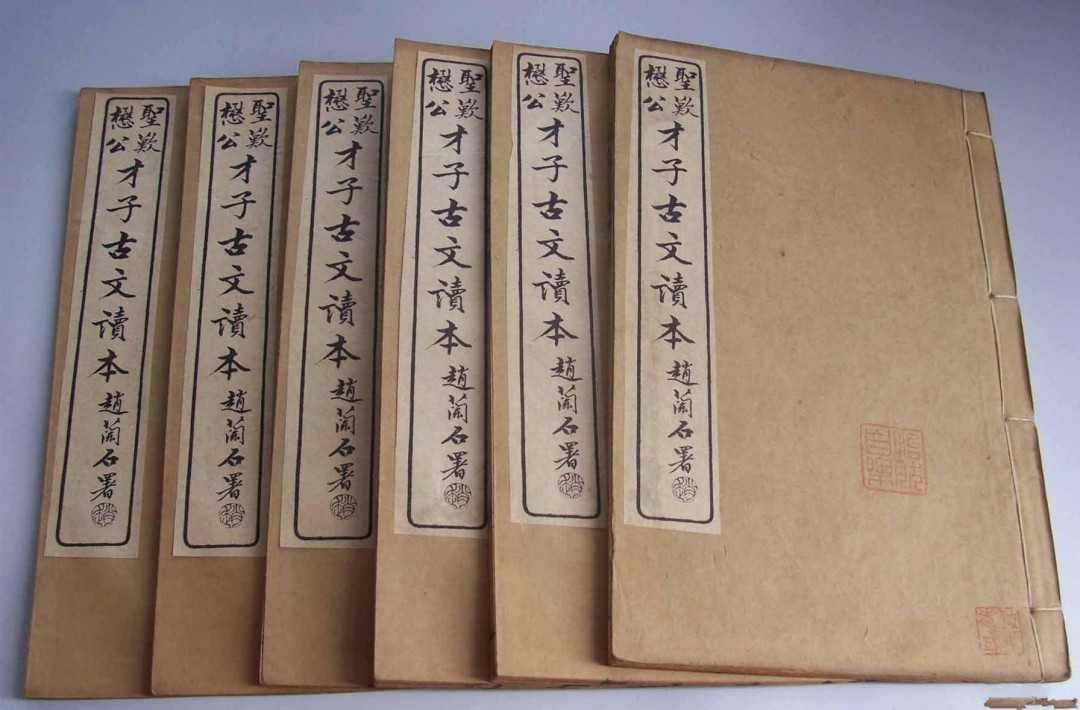 聖歎
懋公
才子古文讀本 趙蘭石署
聖歎
懋公
才子古文讀本 趙蘭石署
聖歎
懋公
才子古文讀本 趙蘭石署
聖歎
懋公
才子古文讀本 趙蘭石署
聖歎
懋公
才子古文讀本 趙蘭石署
聖歎
懋公
才子古文讀本 趙蘭石署